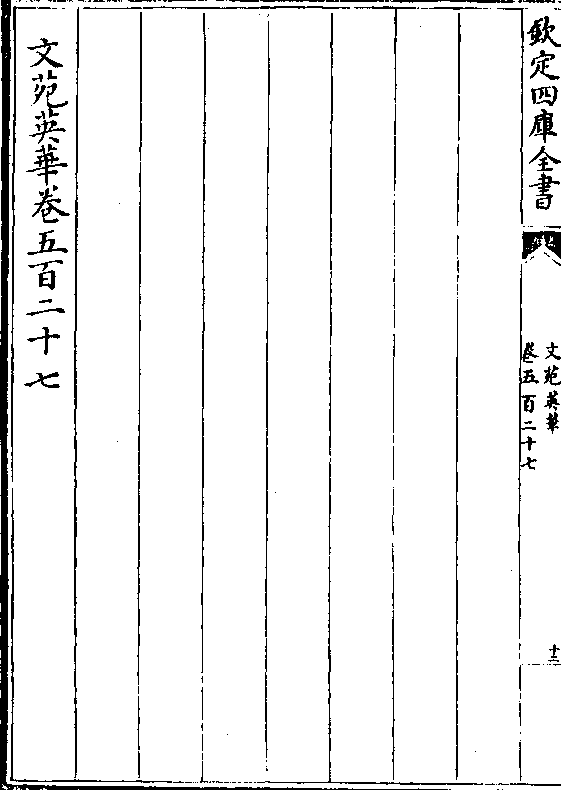 欽定四庫全書
文苑英華
卷五百二十七
十二
文苑英華卷五百二十七